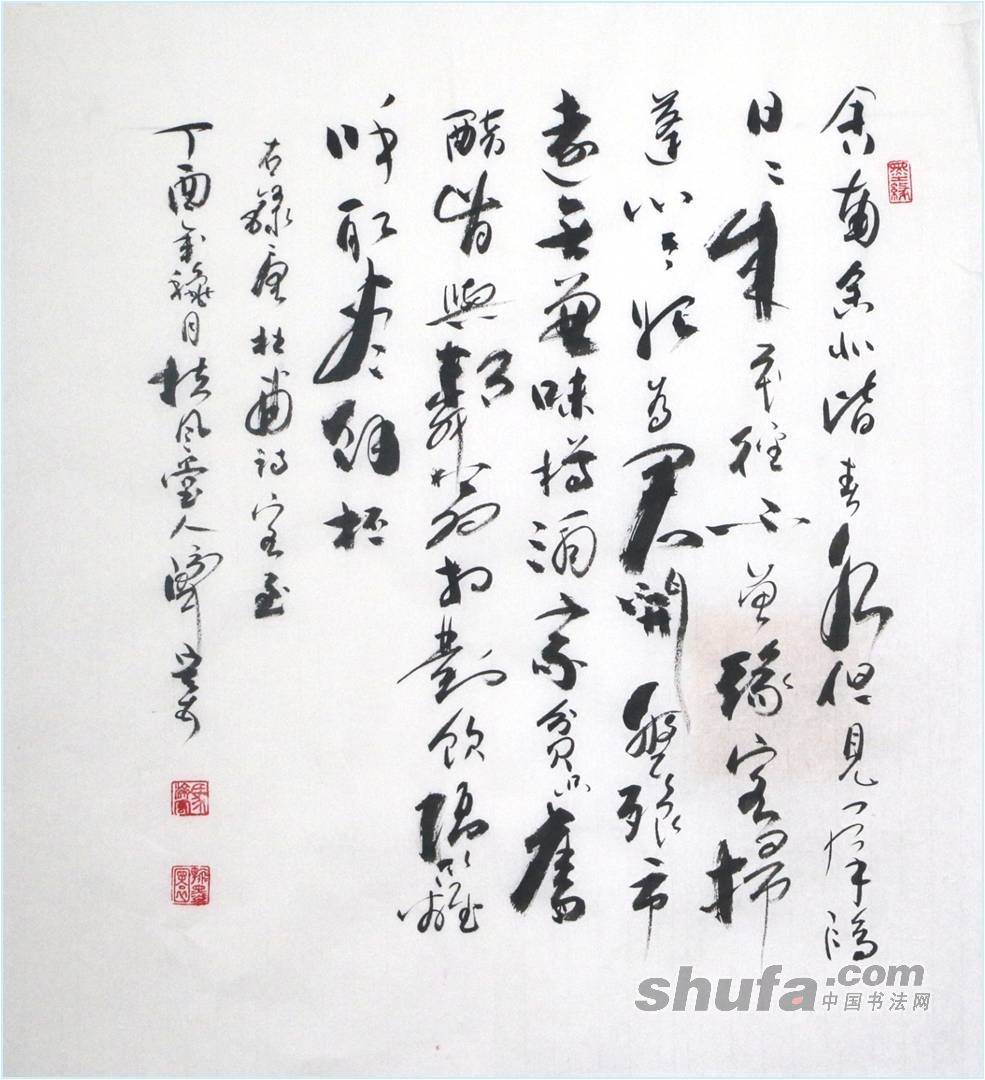 舍南舍北皆春水但見群鷗
日日來花徑不曾緣客掃
蓬門今始為君開盤飧市
遠無兼味樽酒家貧只舊
醅肯與鄰翁相對飲隔籬
呼取盡餘杯
右錄唐杜甫詩客至
丁酉年月扶風堂人
墨緣
shufa.com
中国书法网